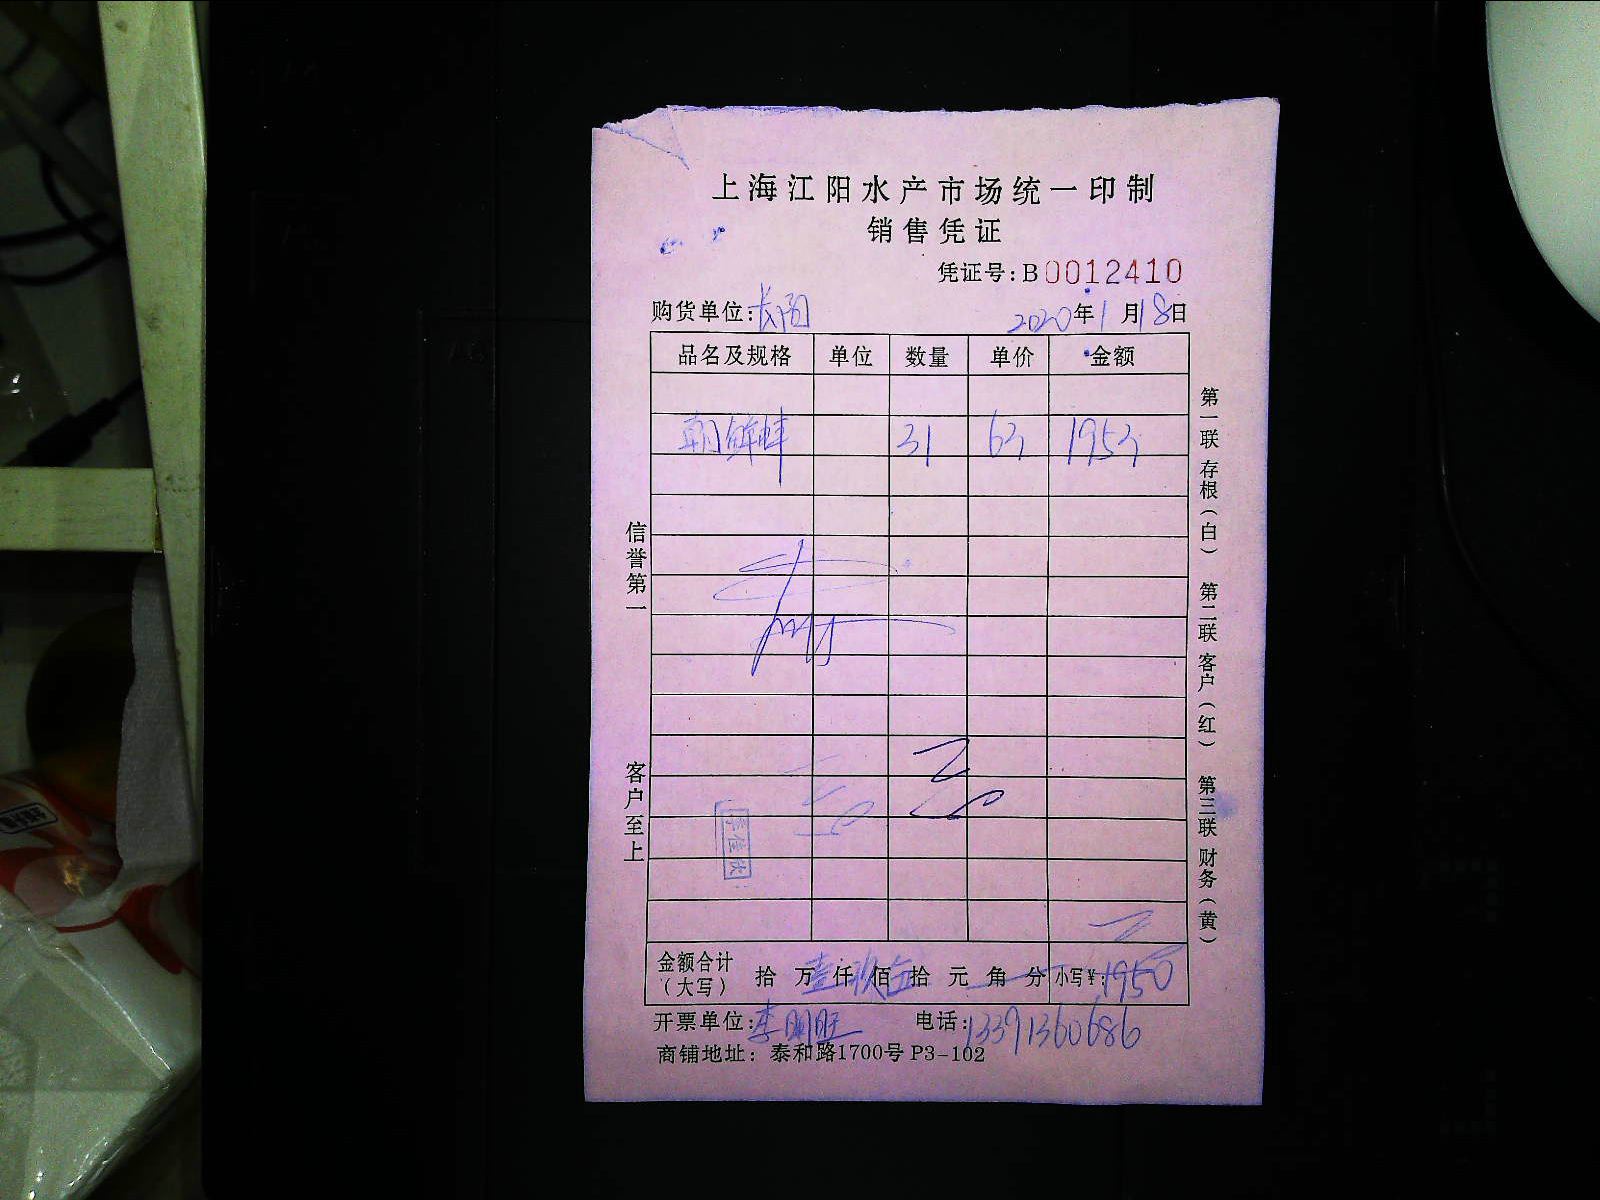 上海江阳水产市场统一印制
销售凭证
凭证号:B0012410
购货单位:长阳 2020年1月18日
品名及规格 单位 数量 单价 金额
朝鲜蚌 31 63 1953
信誉第一
客户至上
第一联存根(白) 第二联客户(红) 第三联财务(黄)
金额合计(大写) 拾 万壹仟玖佰伍拾 元 角 分 小写¥:1950
开票单位:李明旺 电话:13391360686
商铺地址: 泰和路1700号P3-102